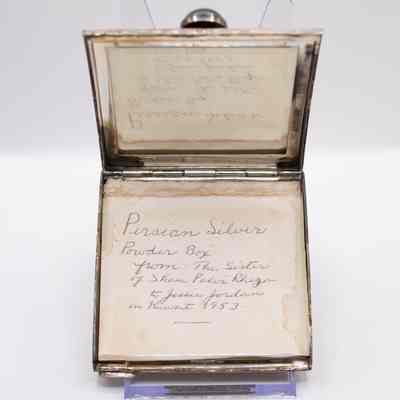 Persian Silver
Powder Box
from The Sister
of Shem Peter Rhega
to Jessie Jordan
in Kuwait 1953